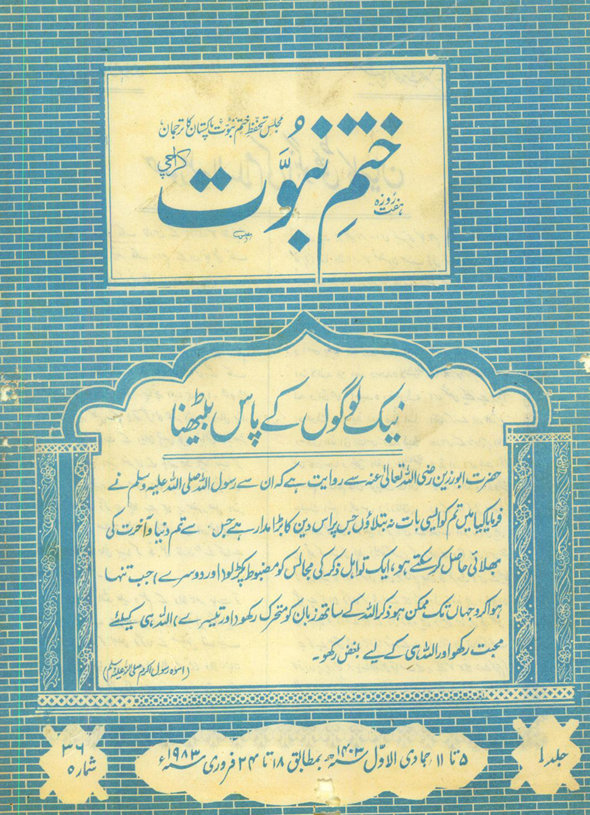 مجلس تحفظ ختم نبوت پاکستان کا ترجمان
ہفت روزہ
ختمِ نبوّت
کراچی
نیک لوگوں کے پاس بیٹھنا
حضرت ابورزین رضی اللہ تعالیٰ عنہ سے روایت ہے کہ ان سے رسول اللہ صلی اللہ علیہ وسلم نے
فرمایا کیا میں تم کو ایسی بات نہ بتلاؤں جس پر اس دین کا بڑا مدار ہے جس سے تم دنیا و آخرت کی
بھلائی حاصل کر سکتے ہو، ایک تو اہل ذکر کی مجالس کو مضبوط پکڑ لو (اور دوسرے) جب تنہا
ہوا کرو جہاں تک ممکن ہو ذکر اللہ کے ساتھ زبان کو متحرک رکھو (اور تیسرے) اللہ ہی کیلئے
محبت رکھو اور اللہ ہی کے لیے بغض رکھو۔
(اسوہ رسول اکرم صلی اللہ علیہ وسلم)
جلد ۱
۵ تا ۱۱ جمادی الاوّل ۱۴۰۳ھ بمطابق ۱۸ تا ۲۴ فروری ۱۹۸۳ء
شمارہ ۳۶